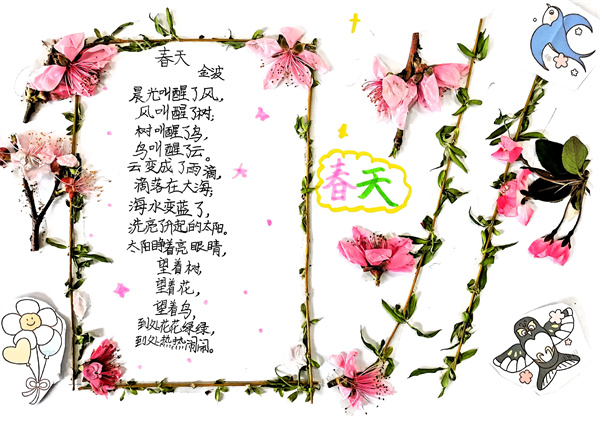 春天
金波
晨光叫醒了风,
风叫醒了树;
树叫醒了鸟,
鸟叫醒了云。
云变成了雨滴,
滴落在大海;
海水变蓝了,
洗亮了升起的太阳。
太阳睁着亮眼睛,
望着树,
望着花,
望着鸟,
到处花花绿绿,
到处热热闹闹。
春天